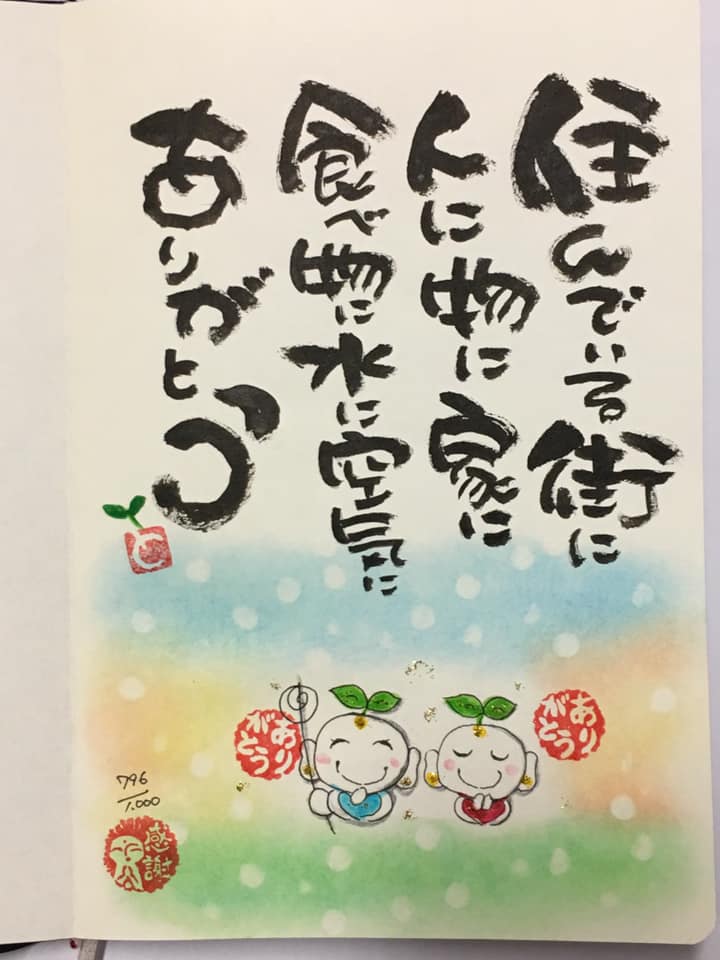 住んでいる街に
人に物に家に
食べ物に水に空気に
ありがとう
と
ありがとう
ありがとう
796/1,000
感謝